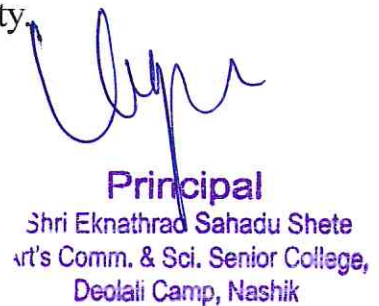 ty.
Principal
Shri Eknathrao Sahadu Shete
Art's Comm. & Sci. Senior College,
Deolali Camp, Nashik